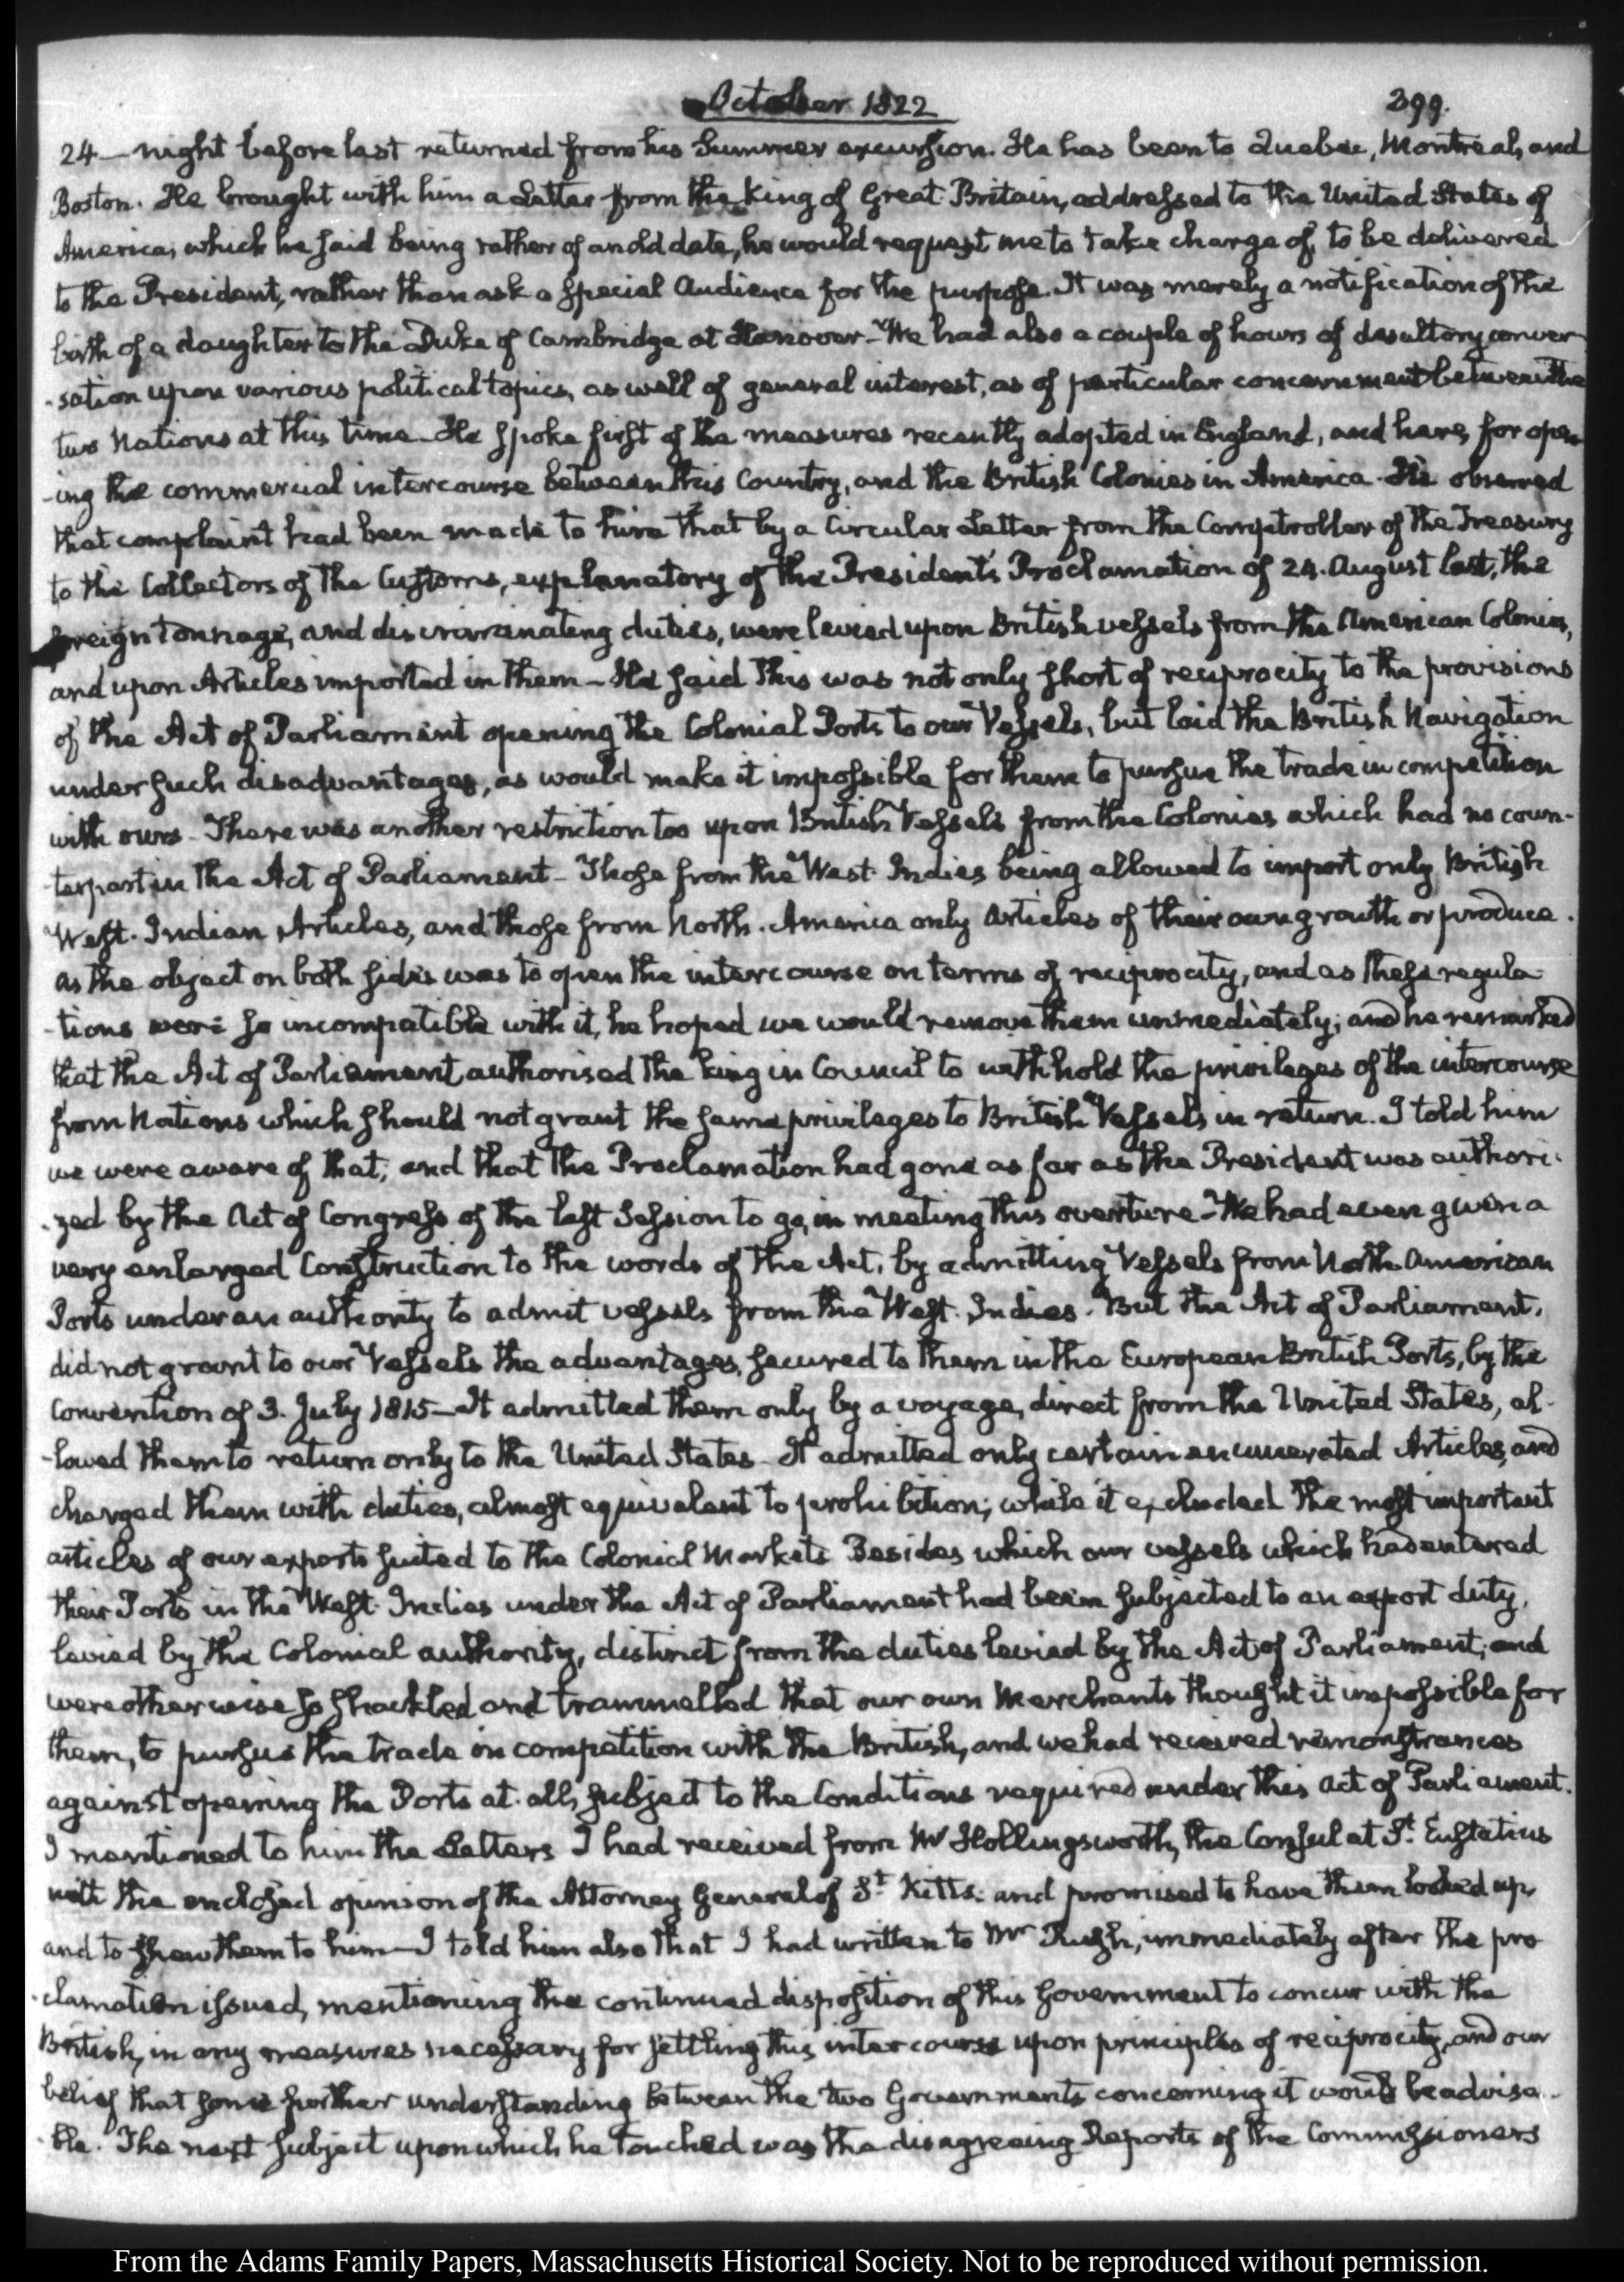 October 1822
399.
24 — night before last returned from his Summer excursion. He has been to Quebec, Montreal, and
Boston. He brought with him a Letter from the King of Great Britain, addressed to the United States of
America, which he said being rather of an old date, he would request me to take charge of, to be delivered
to the President, rather than ask a special Audience for the purpose. It was merely a notification of the
birth of a daughter to the Duke of Cambridge at Hanover — We had also a couple of hours of desultory conver
-sation upon various political topics, as well of general interest, as of particular concernment between the
two Nations at this time — He spoke first of the measures recently adopted in England, and here, for open
-ing the commercial intercourse between this Country, and the British Colonies in America. He observed
that complaint had been made to him that by a Circular Letter from the Comptroller of the Treasury
to the Collectors of the Customs, explanatory of the President's Proclamation of 24. August last, the
foreign tonnage, and discriminating duties, were levied upon British vessels from the American Colonies,
and upon Articles imported in them — He said this was not only short of reciprocity to the provisions
of the Act of Parliament opening the Colonial Ports to our Vessels, but laid the British Navigation
under such disadvantages, as would make it impossible for them to pursue the trade in competition
with ours — There was another restriction too upon British Vessels from the Colonies which had no coun-
-terpart in the Act of Parliament — Those from the West-Indies being allowed to import only British
West-Indian Articles, and those from North-America only articles of their own growth or produce.
As the object on both sides was to open the intercourse on terms of reciprocity, and as these regula
-tions were so incompatible with it, he hoped we would remove them immediately; and he remarked
that the Act of Parliament authorised the King in Council to withhold the privileges of the intercourse
from Nations which should not grant the same privileges to British Vessels in return. I told him
we were aware of that; and that the Proclamation had gone as far as the President was authori-
-zed by the Act of Congress of the last Session to go, in meeting this overture — We had even given a
very enlarged Construction to the words of the Act, by admitting Vessels from North-American
Ports under an authority to admit vessels from the West-Indies. But the Act of Parliament,
did not grant to our Vessels the advantages, secured to them in the European British Ports, by the
Convention of 3. July 1815 — It admitted them only by a voyage, direct from the United States, al-
-lowed them to return only to the United States — It admitted only certain enumerated Articles, and
charged them with duties, almost equivalent to prohibition; while it excluded the most important
articles of our exports suited to the Colonial Markets Besides which our vessels which had entered
their Ports in the West-Indies under the Act of Parliament had been subjected to an export duty,
levied by the Colonial authority, distinct from the duties levied by the Act of Parliament; and
were otherwise so shackled and trammelled that our own Merchants thought it impossible for
them, to pursue the trade in competition with the British, and we had received remonstrances
against opening the Ports at all, subject to the Conditions required under this Act of Parliament.
I mentioned to him the Letters I had received from Mr Hollingsworth, the Consul at St. Eustatius
with the enclosed opinion of the Attorney General of St. Kitts: and promised to have them looked up,
and to shew them to him — I told him also that I had written to Mr Rush, immediately after the pro
-clamation issued, mentioning the continued disposition of this Government to concur with the
British, in any measures necessary for settling this intercourse upon principles of reciprocity, and our
belief that some further understanding between the two Governments concerning it would be advisa-
-ble. The next subject upon which he touched was the disagreeing Reports of the Commissioners
From the Adams Family Papers, Massachusetts Historical Society. Not to be reproduced without permission.